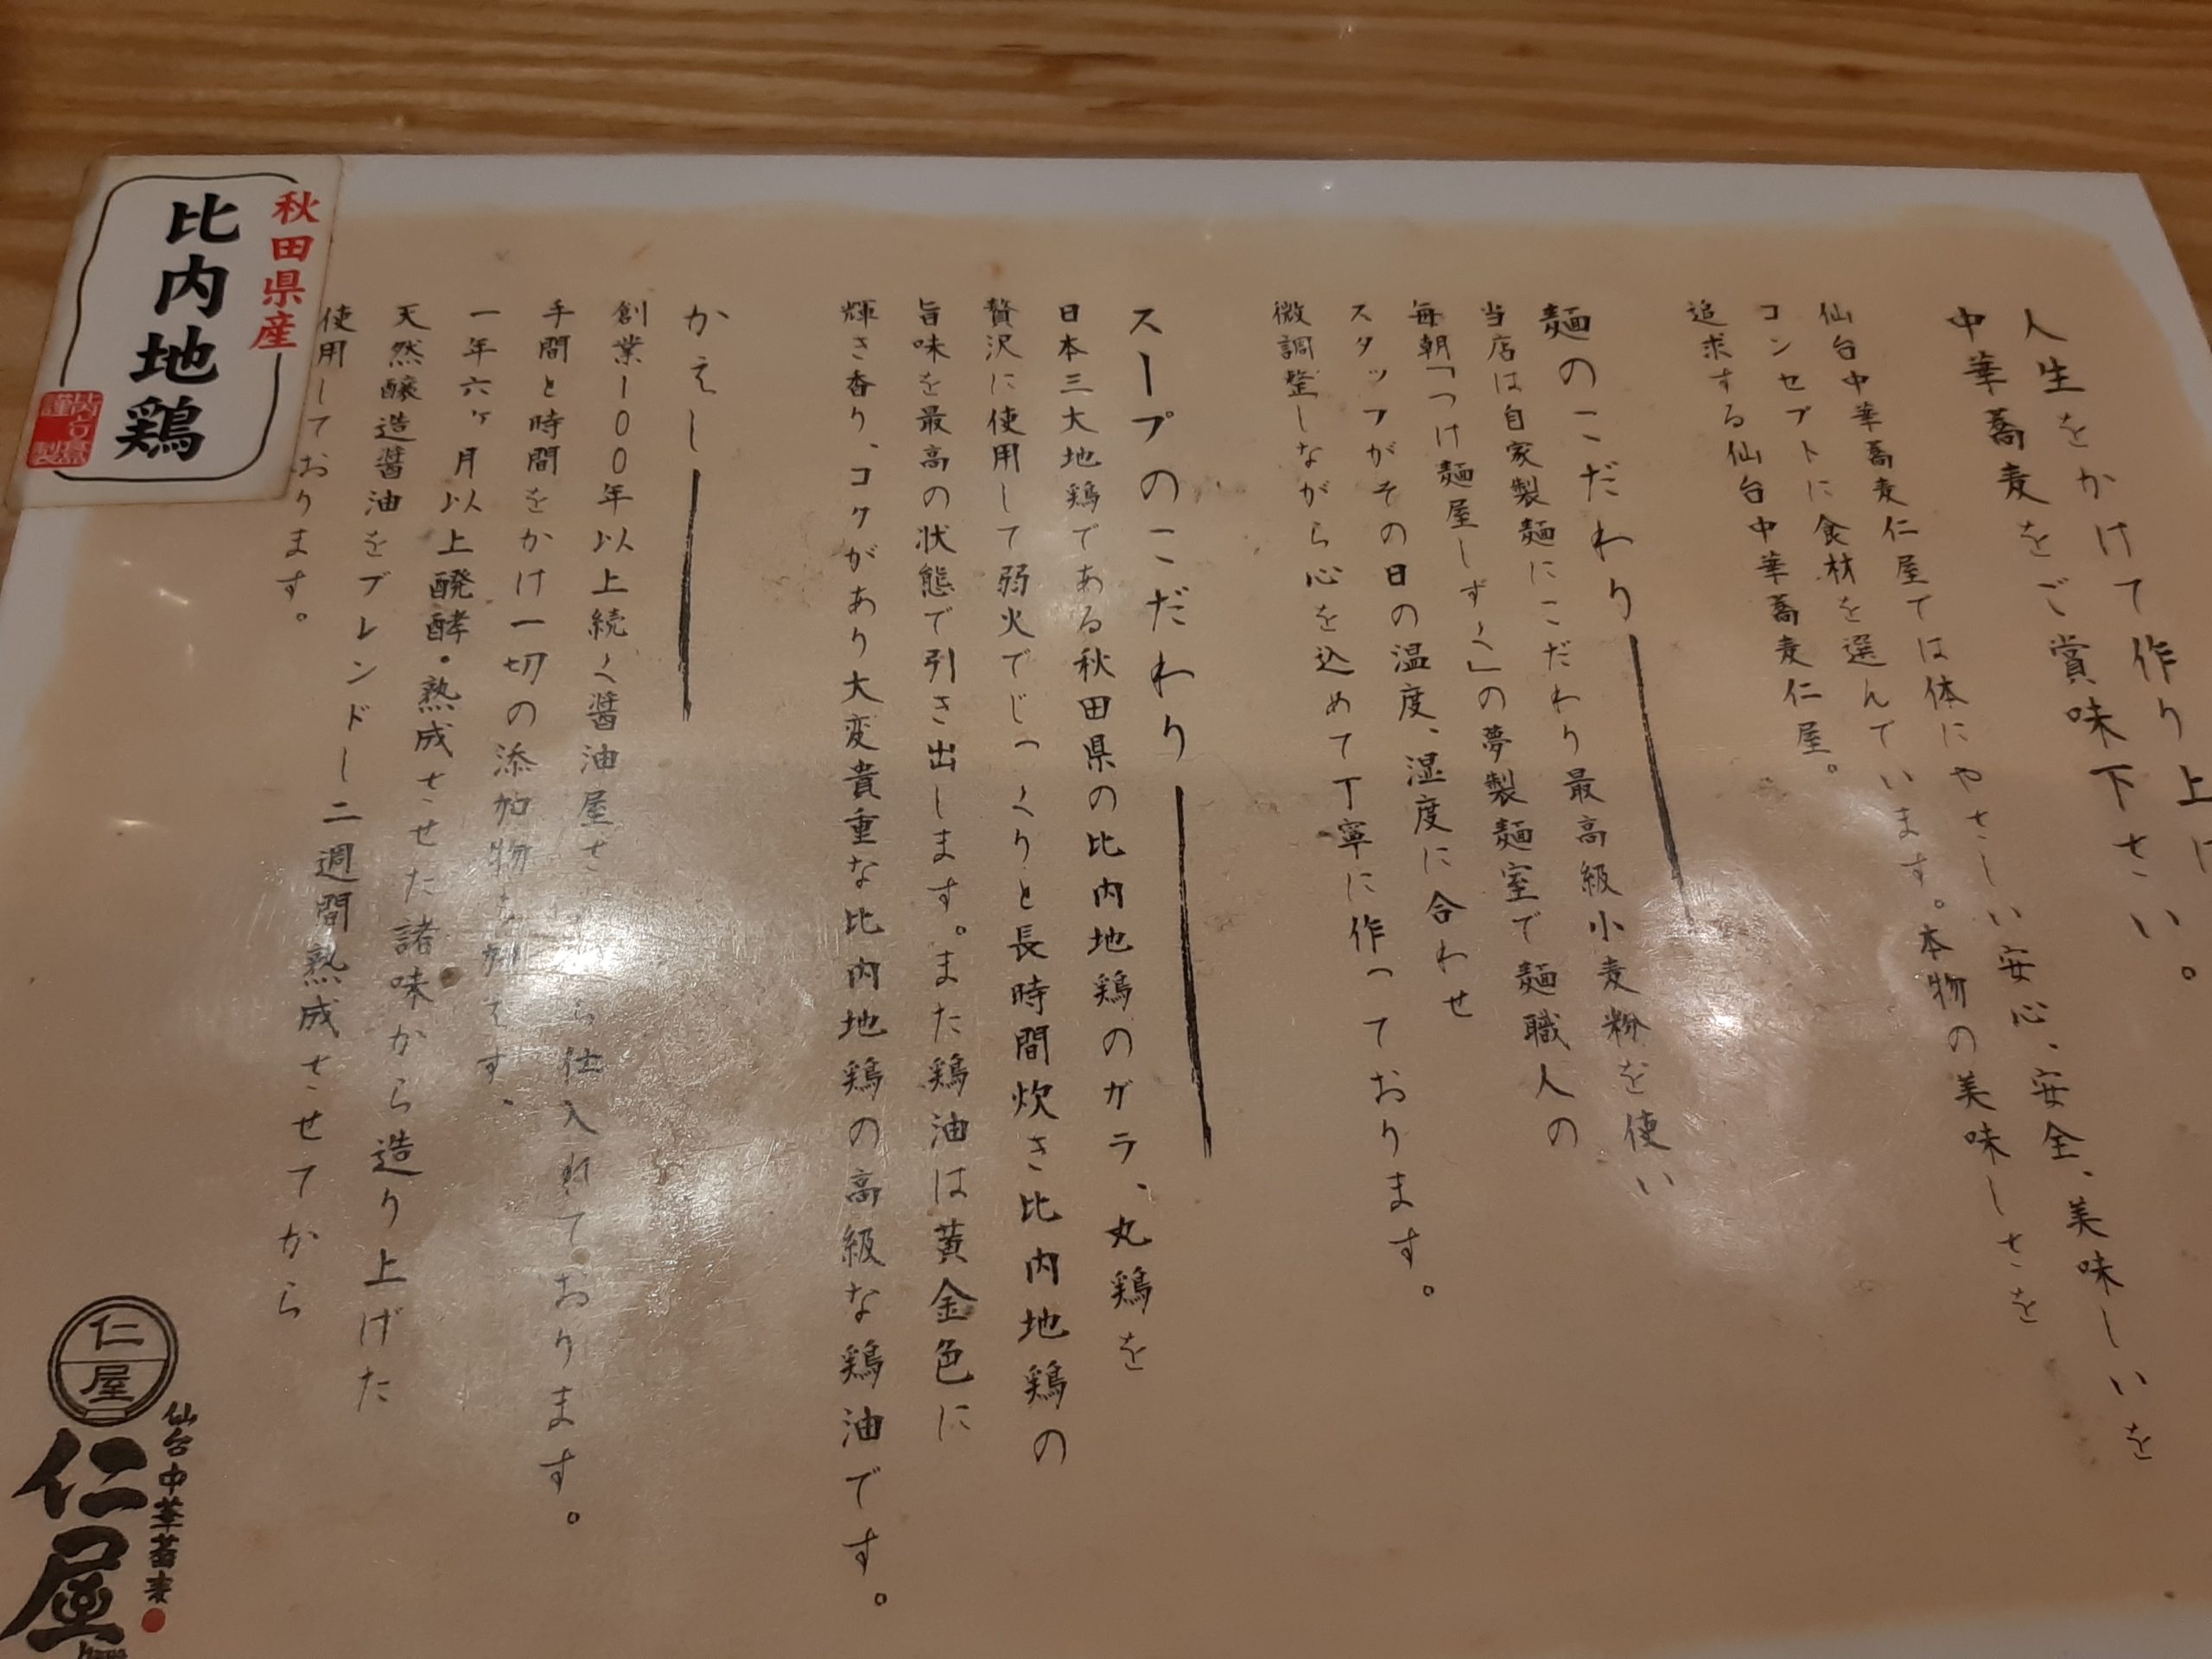 人生をかけて作り上げ
中華蕎麦をご賞味下さい。
仙台中華蕎麦仁屋では体にやさしい安心、安全、美味しいを
コンセプトに食材を選んでいます。本物の美味しさを
追求する仙台中華蕎麦仁屋。
麺のこだわり
当店は自家製麺にこだわり最高級小麦粉を使い
毎朝「つけ麺屋しずく」の夢製麺室で麺職人の
スタッフがその日の温度、湿度に合わせ
微調整しながら心を込めて丁寧に作っております。
スープのこだわり
日本三大地鶏である秋田県の比内地鶏のガラ、丸鶏を
贅沢に使用して弱火でじっくりと長時間炊き比内地鶏の
旨味を最高の状態で引き出します。また鶏油は黄金色に
輝き香り、コクがあり大変貴重な比内地鶏の高級な鶏油です。
かえし
創業100年以上続く醤油屋さ ら仕入れております。
手間と時間をかけ一切の添加物を えず、
一年六ヶ月以上醗酵・熟成させた諸味から造り上げた
天然醸造醤油をブレンドし二週間熟成させてから
使用しております。
秋田県産
比内地鶏
仁屋
仙台中華蕎麦
仁屋